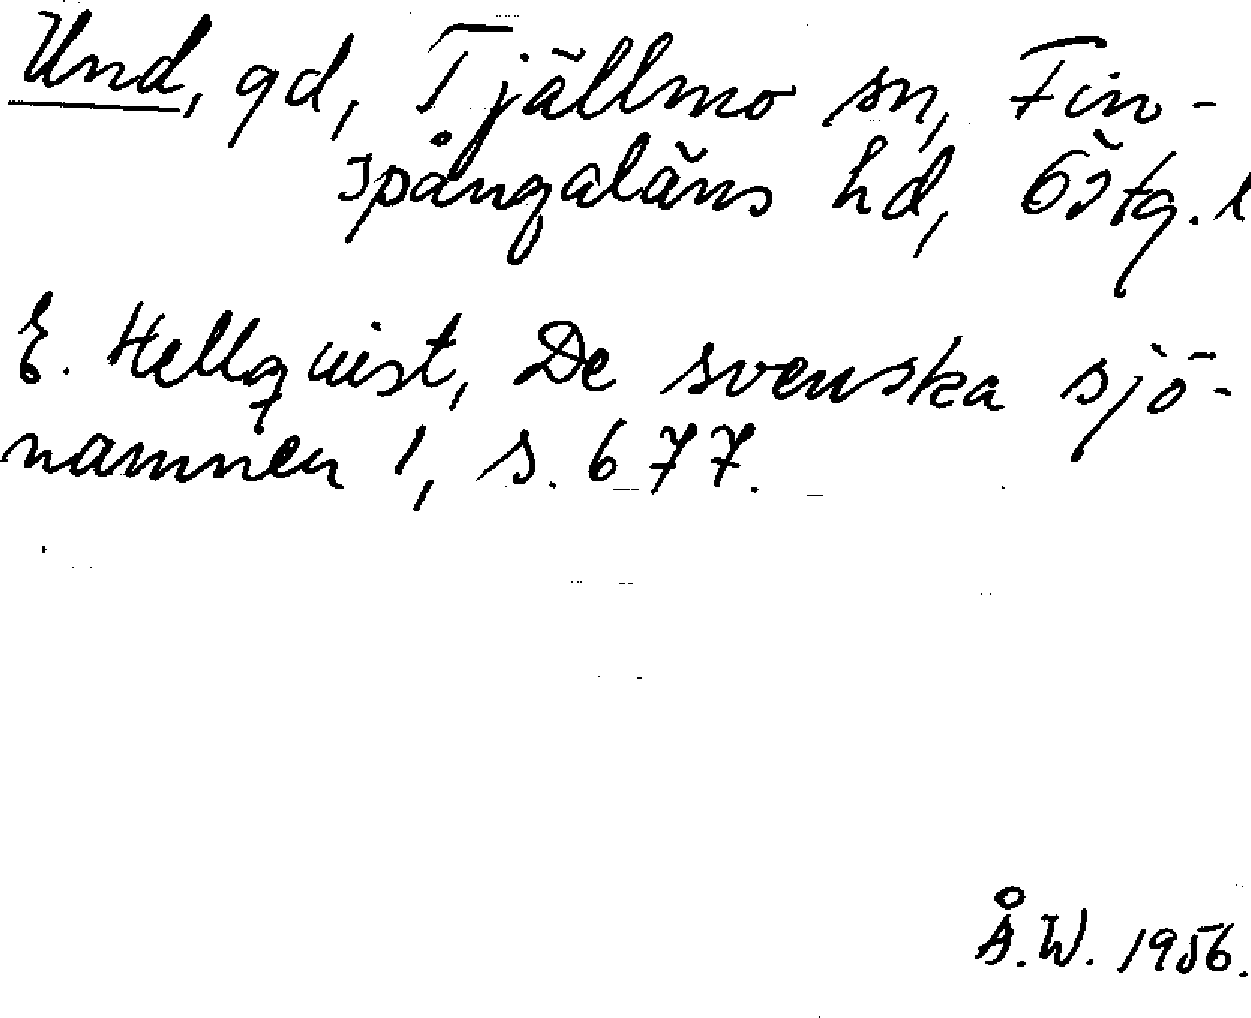 Und, gd, Tjällmo sn, Fin-
spångaläns hd, Östg. l
E. Hellquist, De svenska sjö-
namnen 1, s. 677.
Å.W. 1956.